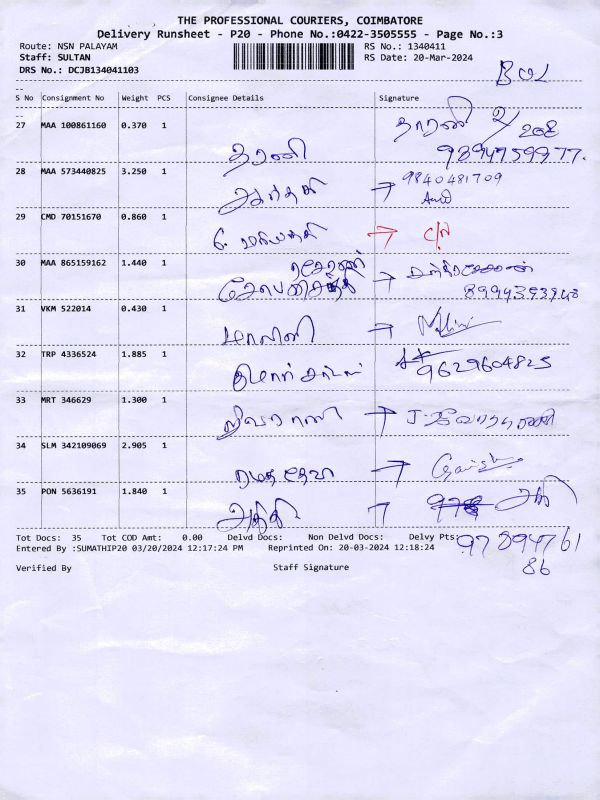 THE PROFESSIONAL COURIERS, COIMBATORE
Delivery Runsheet - P20 - Phone No.:0422-3505555 - Page No.:3
Route: NSN PALAYAM RS No.: 1340411
Staff: SULTAN RS Date: 20-Mar-2024
DRS No.: DCJB134041103
--
S No Consignment No Weight PCS Consignee Details Signature
--
27 MAA 100861160 0.370 1 தரணி தாரணி
9894759977.
28 MAA 573440825 3.250 1 → 9840481709
29 CMD 70151670 0.860 1 →
30 MAA 865159162 1.440 1 →
8994393948
31 VKM 522014 0.430 1 மாலினி →
32 TRP 4336524 1.885 1 9629604825
33 MRT 346629 1.300 1 →
34 SLM 342109069 2.905 1 →
35 PON 5636191 1.840 1
Tot Docs: 35 Tot COD Amt: 0.00 Delvd Docs: Non Delvd Docs: Delvy Pts:
9789476186
Entered By :SUMATHIP20 03/20/2024 12:17:24 PM Reprinted On: 20-03-2024 12:18:24
Verified By Staff Signature